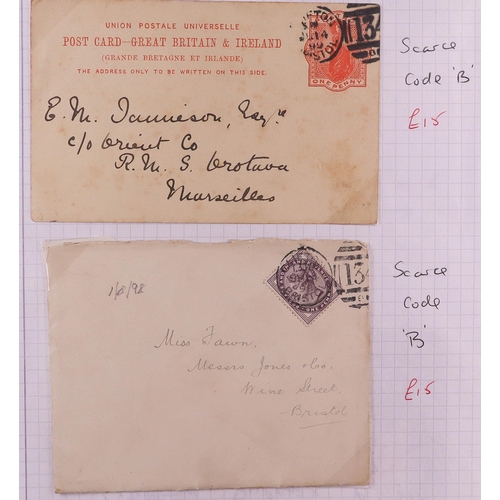 UNION POSTALE UNIVERSELLE
POST CARD—GREAT BRITAIN & IRELAND
(GRANDE BRETAGNE ET IRLANDE)
THE ADDRESS ONLY TO BE WRITTEN ON THIS SIDE.
ONE PENNY
134
E. M. Jamieson, Esqre
c/o Orient Co
R. M. S. Orotava
Marseilles
Scarce
Code 'B'
£15
1/8/98
134
Miss Fawn,
Messrs Jones & Co.
Wine Street
Bristol
Scarce
Code
'B'
£15